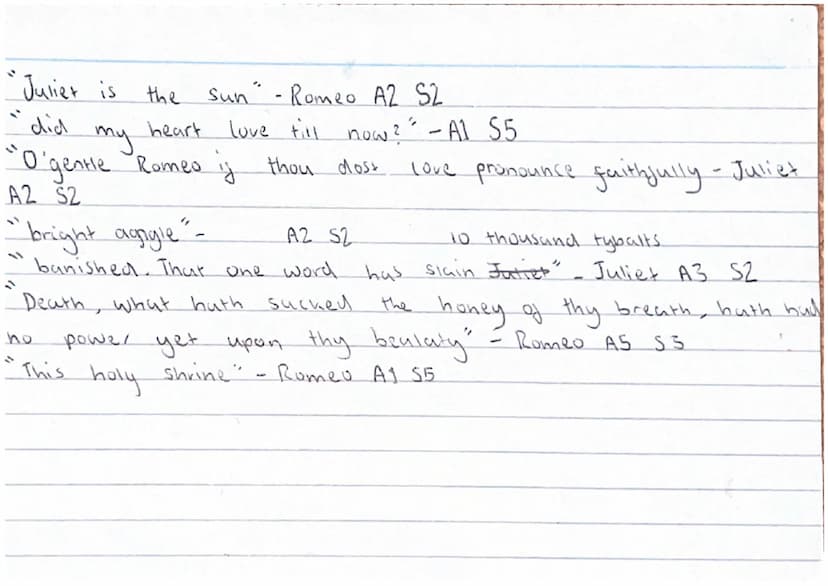 "Juliet is the sun" - Romeo A2 S2
"did my heart love till now?" - A1 S5
"O'gentle Romeo if thou dost love pronounce faithfully - Juliet
A2 S2
"bright " - A2 S2 10 thousand tybalts
"banished. That one word has slain Juliet" - Juliet A3 S2
"Death, what hath sucked the honey of thy breath, hath had
no power yet upon thy " - Romeo A5 S3
"This holy shrine" - Romeo A1 S5